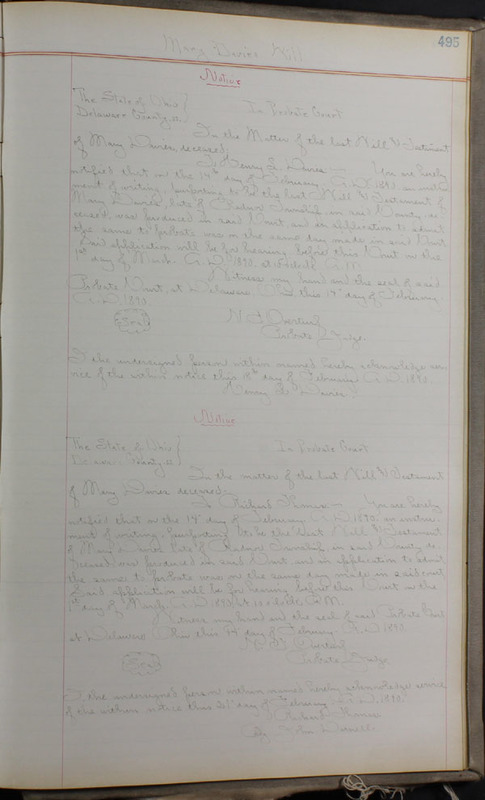 495
Mary Davies Will
Notice
The State of Ohio
Delaware County, ss. In Probate Court
In the Matter of the last Will & Testament
of Mary Davies, deceased;
To Henry L. Davies — You are hereby
notified that on the 14th day of February A.D. 1890, an instru-
ment of writing, purporting to be the last Will & Testament of
Mary Davies, late of Radnor Township, in said County, de-
ceased, was produced in said Court, and an application to admit
the same to probate was on the same day made in said Court
Said application will be for hearing before this Court on the
1st day of March A.D. 1890, at o'clock A.M.
Witness my hand and the seal of said
Probate Court, at Delaware Ohio this 14th day of February
A.D. 1890.
Seal
Probate Judge.
I the undersigned person within named hereby acknowledge ser-
vice of the within notice this day of February A.D. 1890.
Henry L. Davies
Notice
The State of Ohio
Delaware County, ss. In Probate Court
In the matter of the last Will & Testament
of Mary Davies deceased;
To Richard Thomas — You are hereby
notified that on the 14th day of February A.D. 1890, an instru-
ment of writing, purporting to be the last Will & Testament
of Mary Davies late of Radnor Township in said County de-
ceased, was produced in said Court and an application to admit
the same to probate was on the same day made in said court
Said application will be for hearing before this Court on the
1st day of March A.D. 1890, at 10 o'clock A.M.
Witness my hand and the seal of said Probate Court
at Delaware Ohio this 14th day of February A.D. 1890
Seal
Probate Judge
I, the undersigned person within named hereby acknowledge service
of the within notice this 21st day of February A.D. 1890.
Richard Thomas
By John